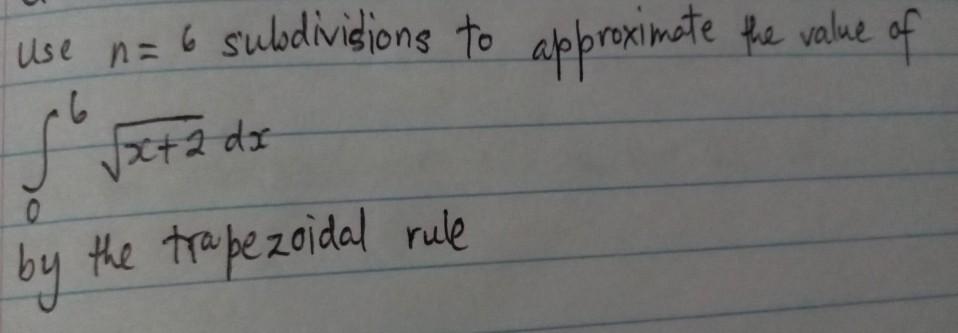 use n = 6 subdivisions to approximate the value of
∫₀⁶ √(x+2) dx
by the trapezoidal rule